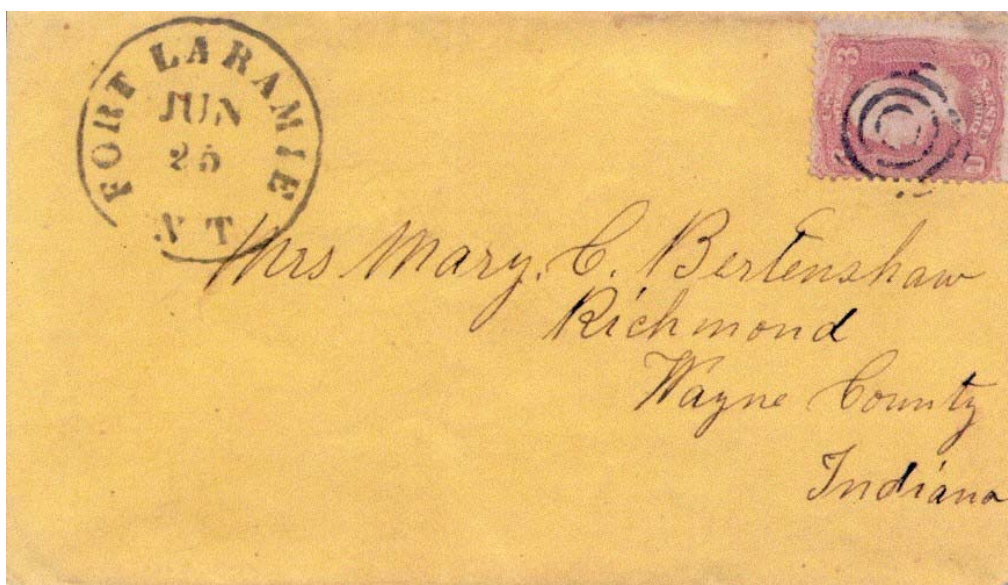 FORT LARAMIE
JUN
25
N T
3 3
U
Mrs Mary. C. Bertenshaw
Richmond
Wayne County
Indiana